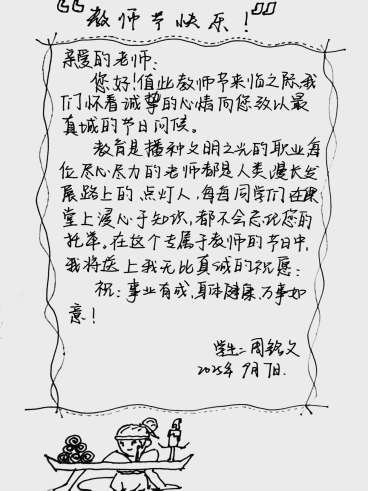 “教师节快乐！”
亲爱的老师：
您好！值此教师节来临之际，我
们怀着诚挚的心情向您致以最
真诚的节日问候。
教育是播种文明之光的职业，每
位尽心尽力的老师都是人类漫长发
展路上的点灯人，每每同学们在课
堂上浸心于知识，都不会忘记您的
托举。在这个专属于教师的节日中，
我将送上我无比真诚的祝愿：
祝：事业有成，身体健康，万事如
意！
学生：周铭文
2025年9月7日.